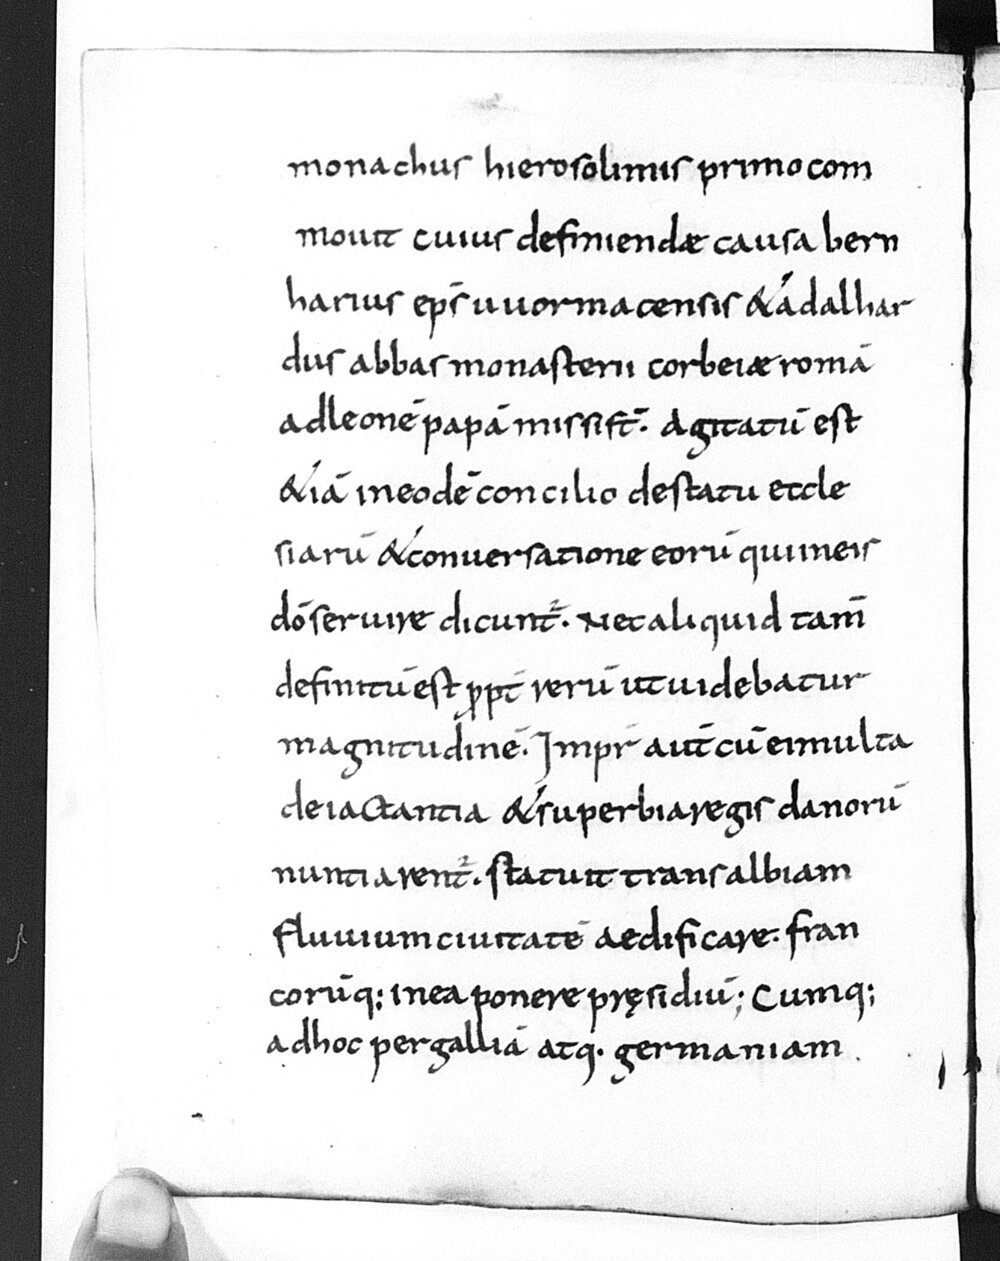 monachus hierosolimis primo com
mouit cuius definiendæ causa bern
harius ep̄s uuormacensis & adalhar
dus abbas monasterii corbeiæ romā
ad leonē papā missi st̄. Agitatū est
&iā in eodē concilio de statu eccle
siarū & conuersatione eorū qui in eis
dō seruire dicunt̄. Nec aliquid tam̄
definitū est ꝓpt̄ rerū ut uidebatur
magnitudinē. Imṗr aut̄ cū ei multa
de iactantia & superbia regis danorū
nuntiarent̄. statuit trans albiam
fluuium ciuitatē aedificare. fran
corūq; in ea ponere pręsidiū; Cumq;
ad hoc per galliā atq. germaniam.